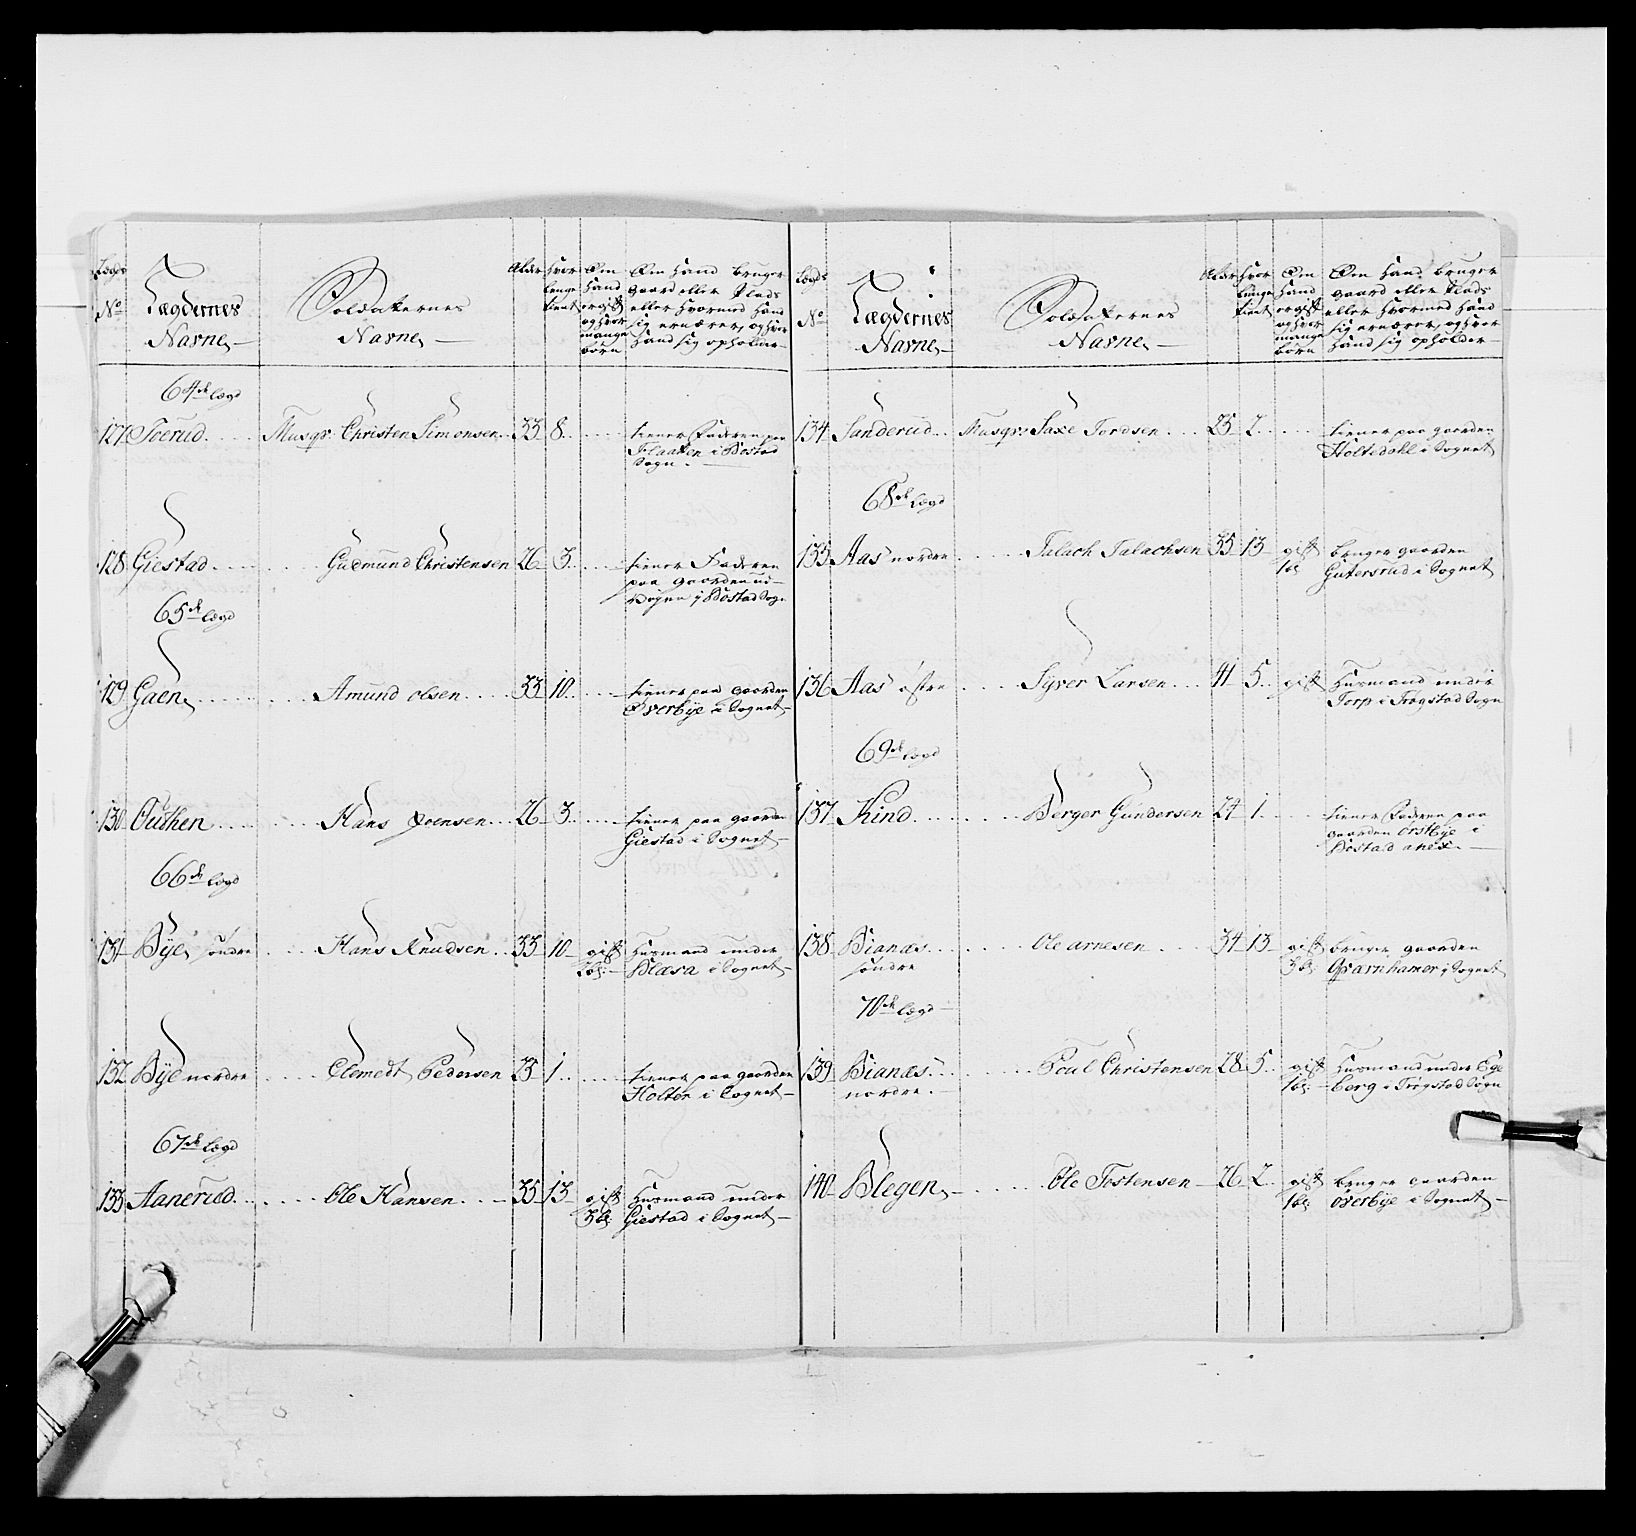 Lægds No
Lægdernes Navne
Soldaternes Navne
Alder
Hvor lenge tient
Om Hand er gift og hvor mange børn
Om Hand bruger gaard eller Plads eller hvormed hand sig ernærer, og hvor hand sig opholder
64de lægd
127 Soerud Musqr Christen Simonsen 33 8 tiener Faderen paa
Flaaten i Bostad
Sogn
128 Giestad Gudmund Christensen 26 3 tiener Faderen
paa gaarden
i Bostad Sogn
65de lægd
129 Gaen Amund Olsen 33 10 tiener paa gaarden
Øverbye i Sognet
130 Outhen Hans Joensen 26 3 tiener paa gaarden
Giestad i Sognet
66de lægd
131 Bye søndre Hans Knudsen 33 10 gift Husmand under
Blæsa i Sognet
132 Bye nordre Clemedt Pedersen 23 1 tiener paa gaarden
Holter i Sognet
67de lægd
133 Aanerud Ole Hansen 35 13 gift Husmand under
3 b: Giestad i Sognet
Lægds No
Lægdernes Navne
Soldaternes Navne
Alder
Hvor lenge tient
Om Hand er gift og hvor mange børn
Om Hand bruger gaard eller Plads eller hvormed hand sig ernærer, og hvor hand sig opholder
134 Sanderud Musqr Saxe Tordsen 25 2 tiener paa gaarden
Holtedahl i Sognet
68de lægd
135 Aas nordre Talach Talachsen 35 13 gift bruger gaarden
1 b: Gutersrud i Sognet
136 Aas østre Syver Larsen 41 5 gift Husmand under
Torp i Trøgstad Sogn
69de lægd
137 Kind Berger Gundersen 24 1 tiener Faderen paa
gaarden Ørstbye i
Bostad anex
138 Bianæs Ole Arnesen 34 13 gift bruger gaarden
søndre 3 b: Qvarnhamer i Sognet
70de lægd
139 Bianæs Poul Christensen 28 5 gift Husmand under Ege
nordre 1 b: berg i Trøgstad Sogn
140 Blegen Ole Tostensen 26 2 gift bruger gaarden
1 b: Øverbye i Sognet